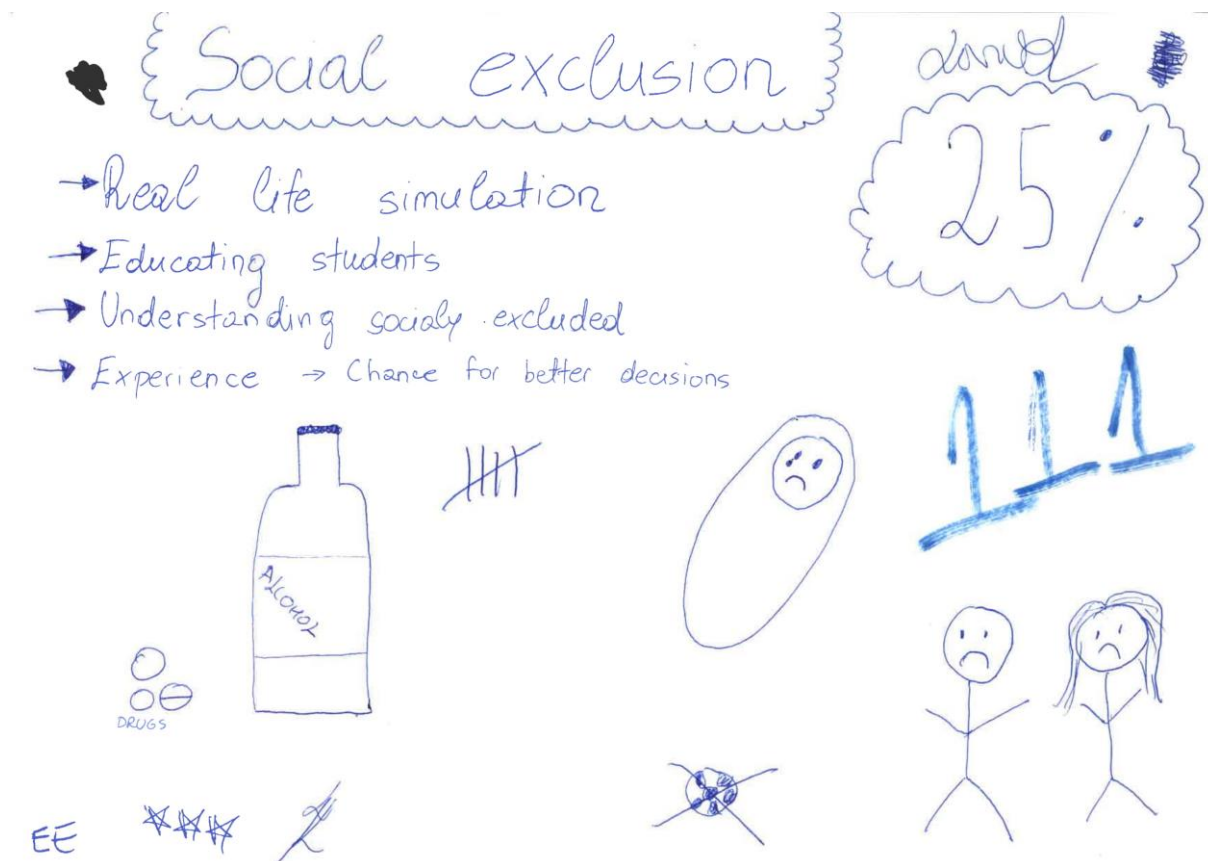 Social exclusion
25%
→ Real life simulation
→ Educating students
→ Understanding socialy excluded
→ Experience → Chance for better decisions
1 1 1
ALCOHOL
DRUGS
EE